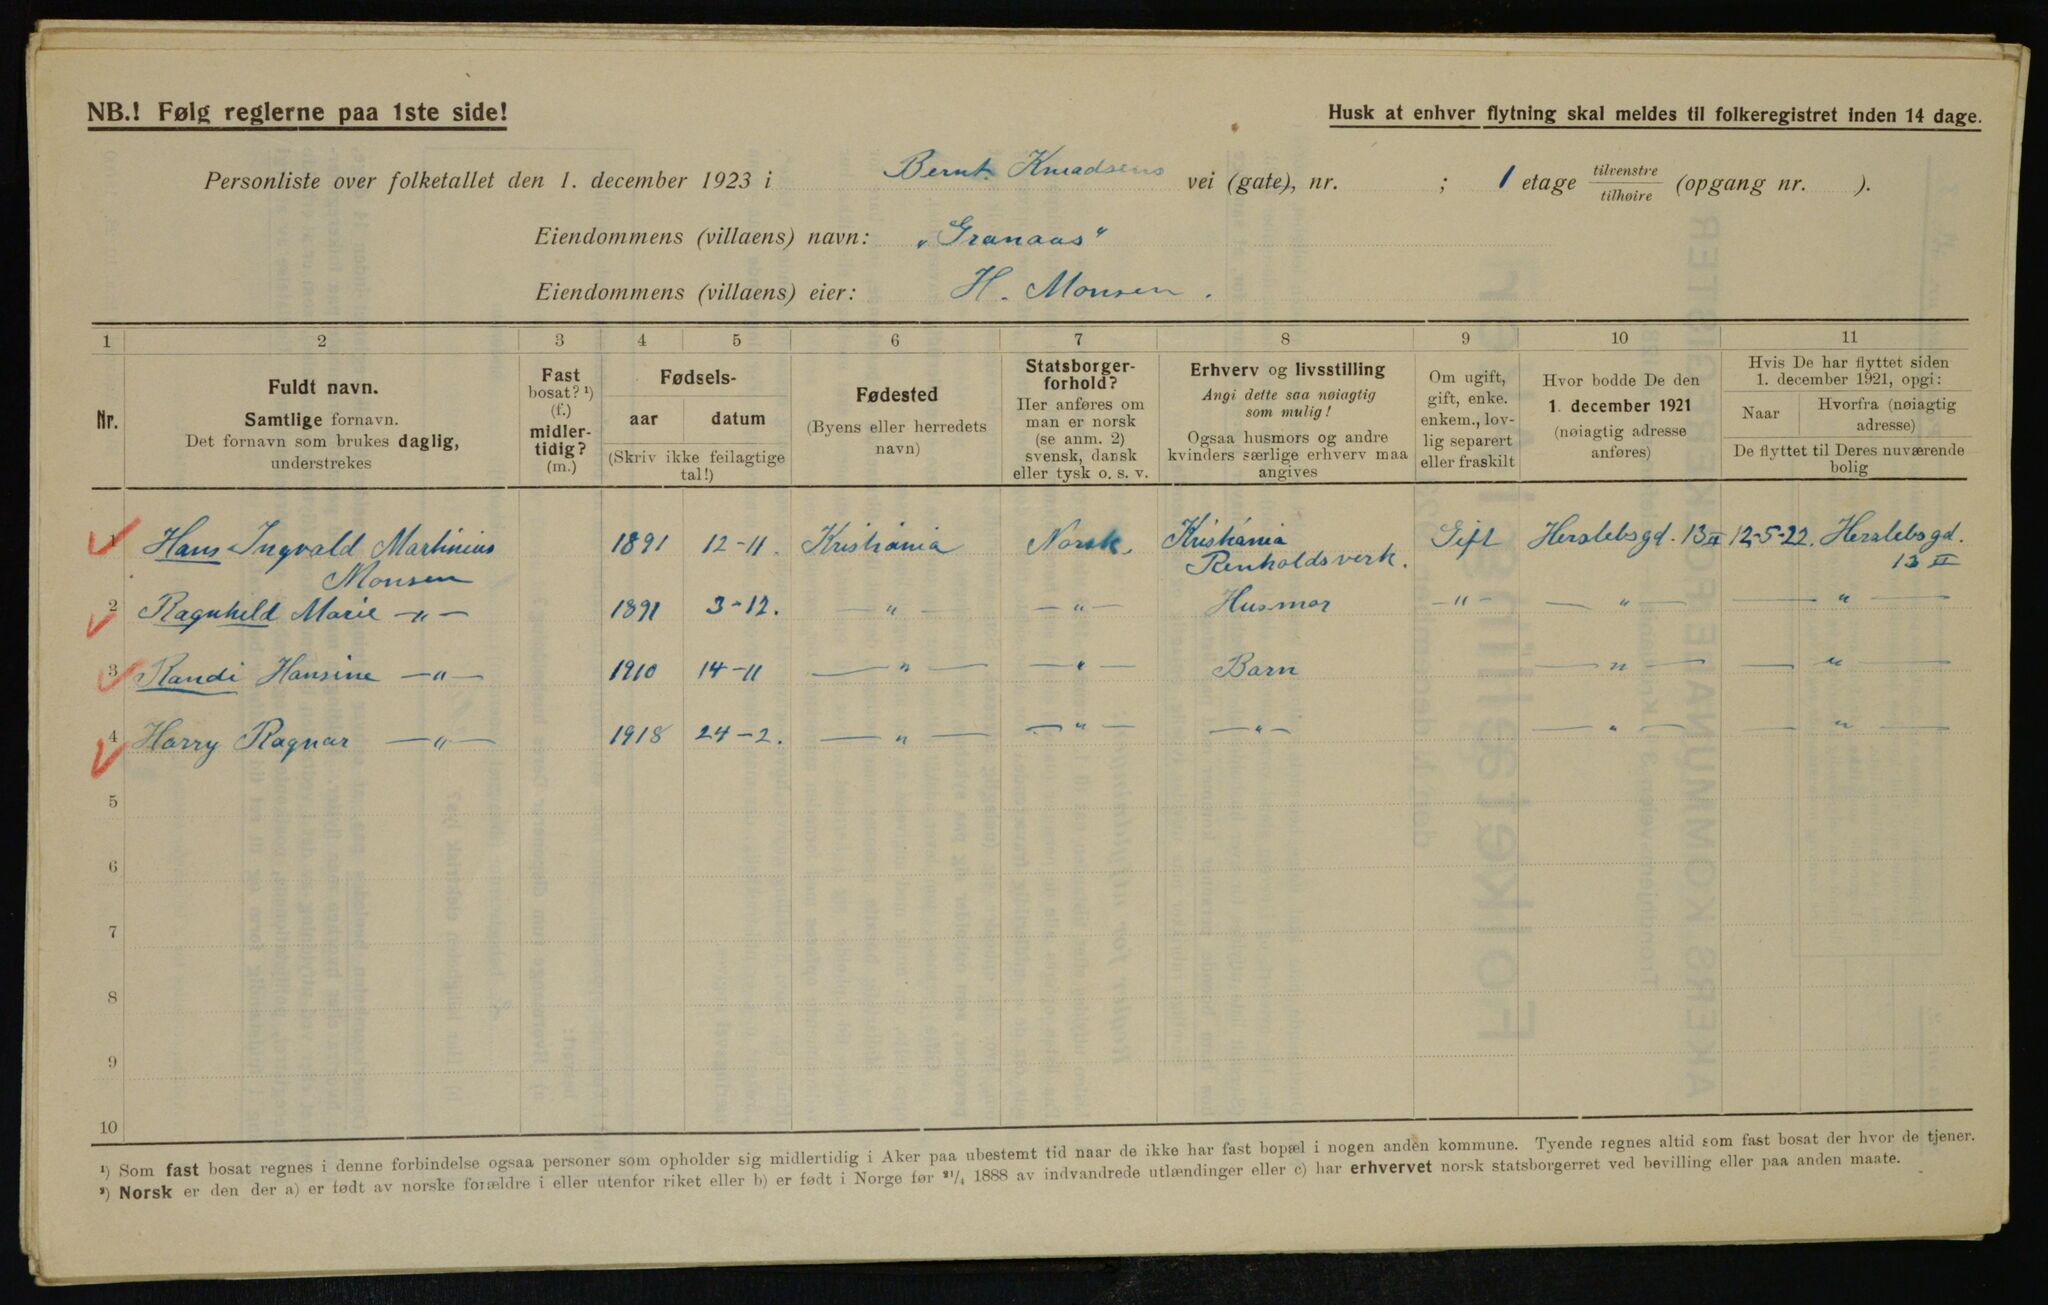 NB.! Følg reglerne paa 1ste side!
Husk at enhver flytning skal meldes til folkeregistret inden 14 dage.
Personliste over folketallet den 1. december 1923 i Bernt Knudsens vei (gate), nr. ; 1 etage tilvenstre/tilhøire (opgang nr. ).
Eiendommens (villaens) navn: „Granaas“
Eiendommens (villaens) eier: H. Monsen.
1 2 3 4 5 6 7 8 9 10 11
Nr.
Fuldt navn.
Samtlige fornavn.
Det fornavn som brukes daglig,
understrekes
Fast
bosat? ¹)
(f.)
midler-
tidig?
(m.)
Fødsels-
aar datum
(Skriv ikke feilagtige
tal!)
Fødested
(Byens eller herredets
navn)
Statsborger-
forhold?
Her anføres om
man er norsk
(se anm. 2)
svensk, dansk
eller tysk o. s. v.
Erhverv og livsstilling
Angi dette saa nøiagtig
som mulig!
Ogsaa husmors og andre
kvinders særlige erhverv maa
angives
Om ugift,
gift, enke.
enkem., lov-
lig separert
eller fraskilt
Hvor bodde De den
1. december 1921
(nøiagtig adresse
anføres)
Hvis De har flyttet siden
1. december 1921, opgi:
Naar Hvorfra (nøiagtig
adresse)
De flyttet til Deres nuværende
bolig
1 Hans Ingvald Martinius 1891 12-11. Kristiania Norsk. Kristiania Gift Herslebsgd. 13 II 12-5-22. Herslebsgd.
Monsen Renholdsverk. 13 II
2 Ragnhild Marie —„— 1891 3-12. —„— —„— Husmor —„— —„— —„—
3 Randi Hansine —„— 1910 14-11 —„— —„— Barn —„— —„—
4 Harry Ragnar —„— 1918 24-2. —„— —„— —„— —„— —„—
5
6
7
8
9
10
¹) Som fast bosat regnes i denne forbindelse ogsaa personer som opholder sig midlertidig i Aker paa ubestemt tid naar de ikke har fast bopæl i nogen anden kommune. Tyende regnes altid som fast bosat der hvor de tjener.
²) Norsk er den der a) er født av norske forældre i eller utenfor riket eller b) er født i Norge før ²¹/₄ 1888 av indvandrede utlændinger eller c) har erhvervet norsk statsborgerret ved bevilling eller paa anden maate.